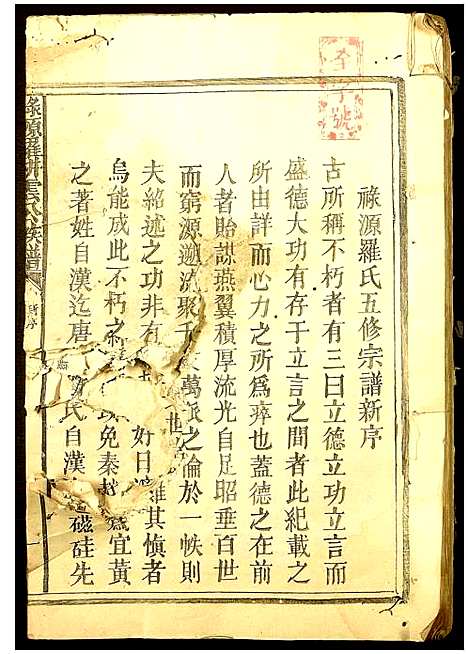 李字號
祿源羅氏五修宗譜新序
古所稱不朽者有三曰立德立功立言而
盛德大功有存于立言之間者此紀載之
所由詳而心力之所爲瘁也蓋德之在前
人者貽謀燕翼積厚流光自足昭垂百世
而窮源遡流聚千萬派之倫於一帙則
夫紹述之功非有其愼者
烏能成此不朽之免秦宜黃
之著姓自漢迄唐氏自漢磁硅先
祿源羅耕雲公族譜